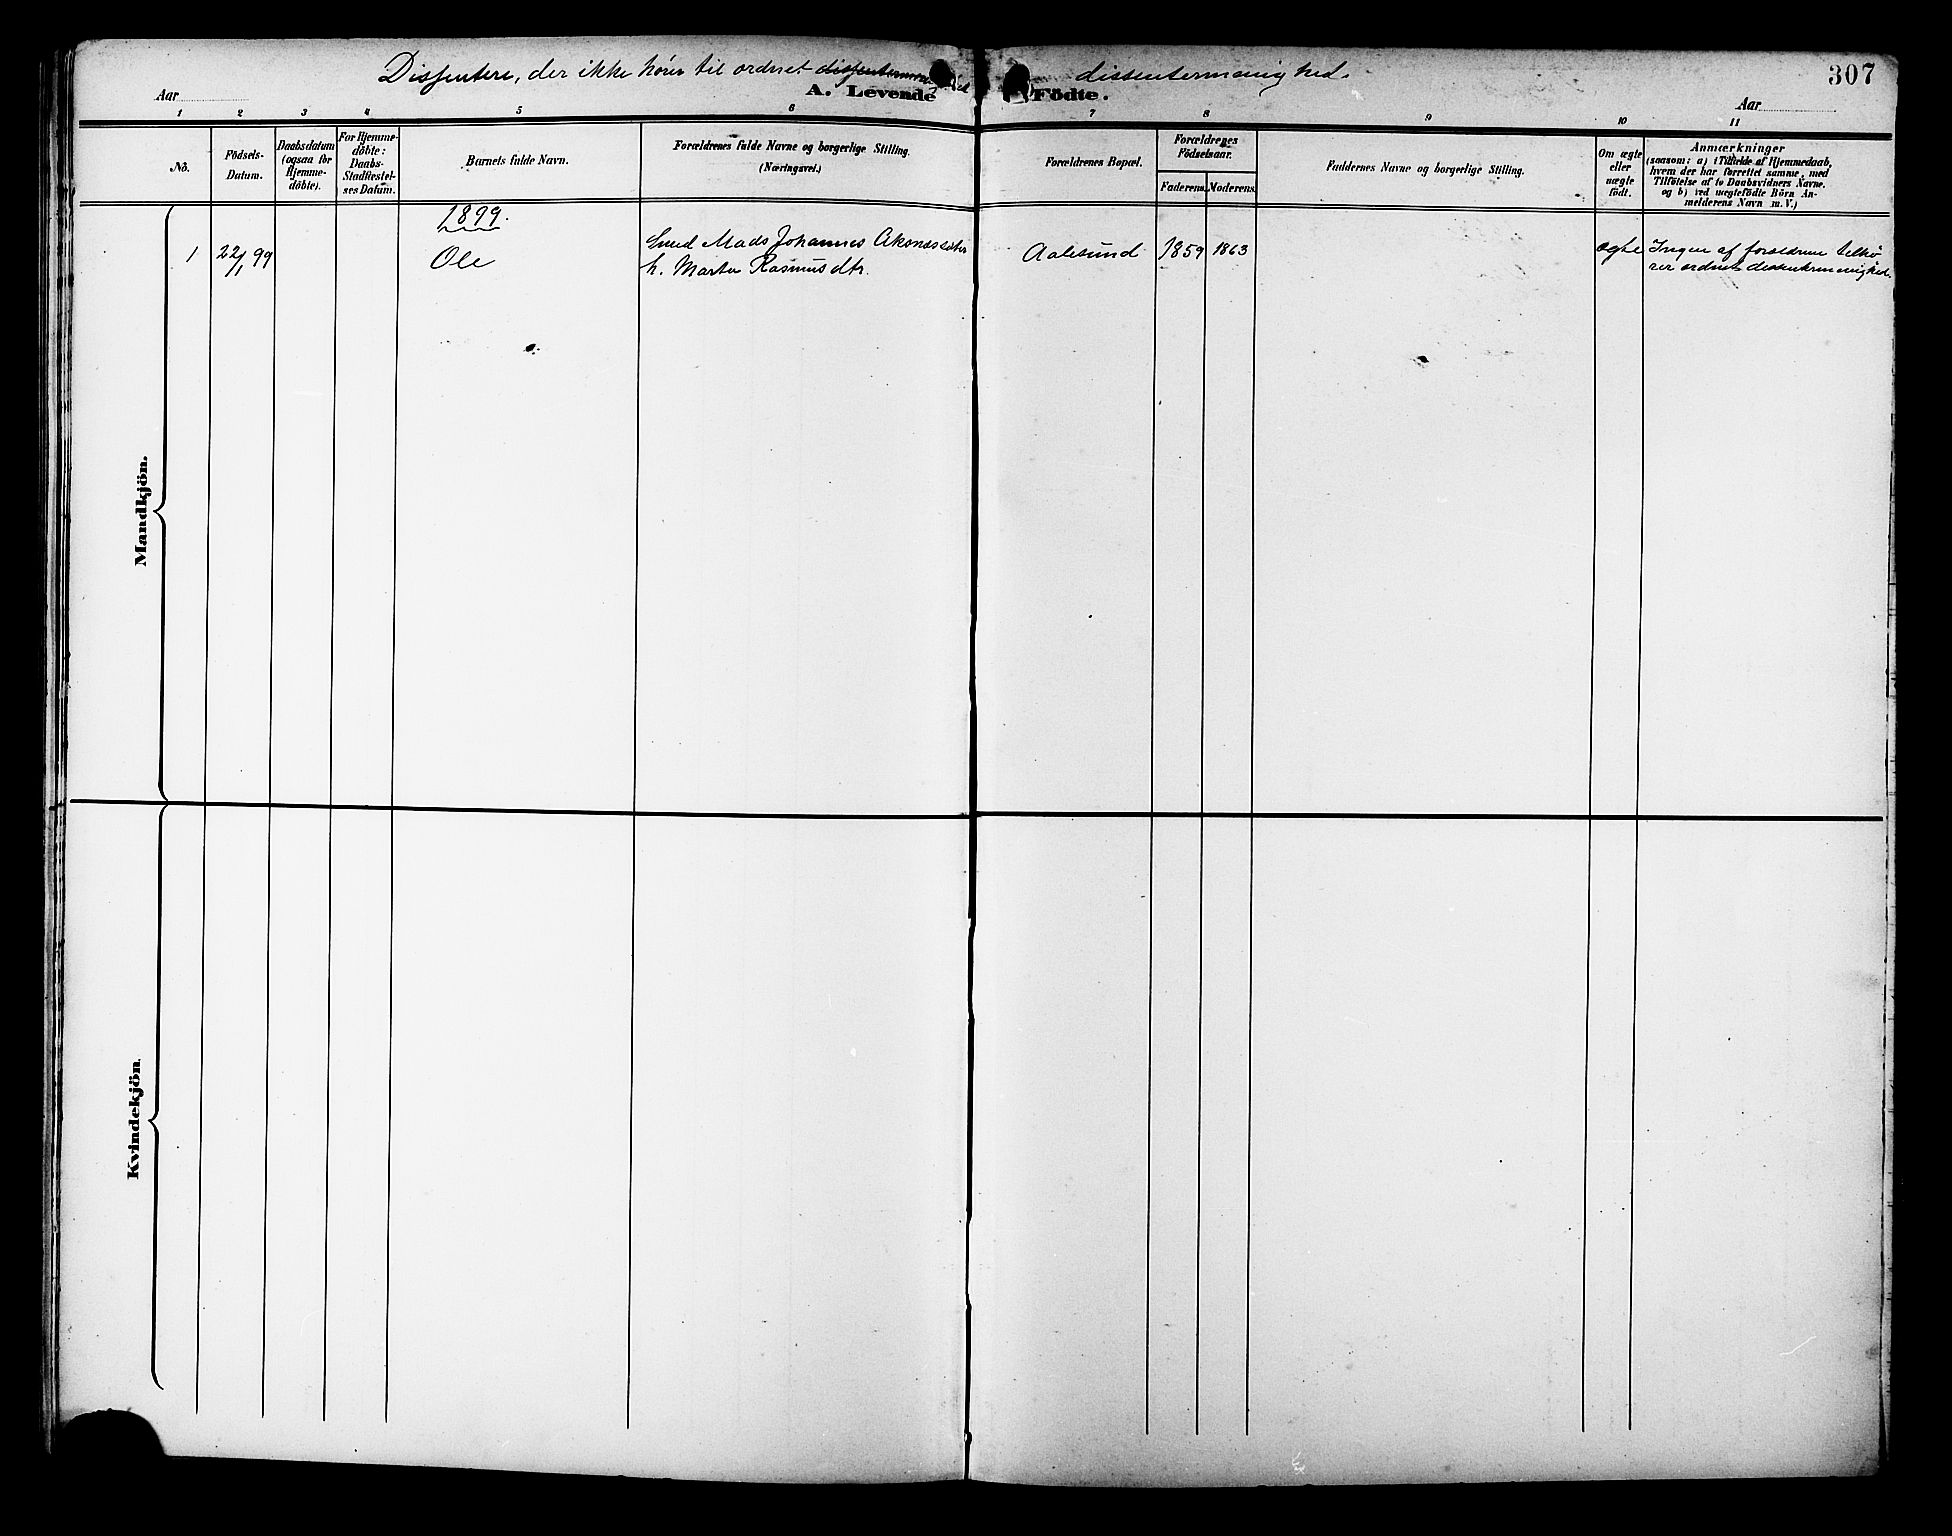 Dissentere, der ikke hører til ordnet dissentermenighed.
307
Aar
A. Levende Födte.
Aar
1 2 3 4 5 6 7 8 9 10 11
No.
Födsels-
Datum.
Daabsdatum
(ogsaa for
Hjemme-
döbte).
For Hjemme-
döbte:
Daabs-
Stadfæstel-
ses Datum.
Barnets fulde Navn.
Forældrenes fulde Navne og borgerlige Stilling.
(Næringsvei.)
Forældrenes Bopæl.
Forældrenes
Födselsaar.
Faderens.
Moderens.
Faddernes Navne og borgerlige Stilling.
Om ægte
eller
uægte
födt.
Anmærkninger
(saasom: a) i Tilfælde af Hjemmedaab,
hvem der har forrettet samme, med
Tilföielse af to Daabsvidners Navne.
og b) ved uægtefödte Börn An-
melderens Navn m. V.)
Mandkjön.
1899.
1 22/1 99 Ole
Mads Johannes
h. Marta Rasmusdtr.
Aalesund 1859 1863
ægte
Ingen af forældrene tilhø
rer ordnet dissentermenighed.
Kvindekjön.